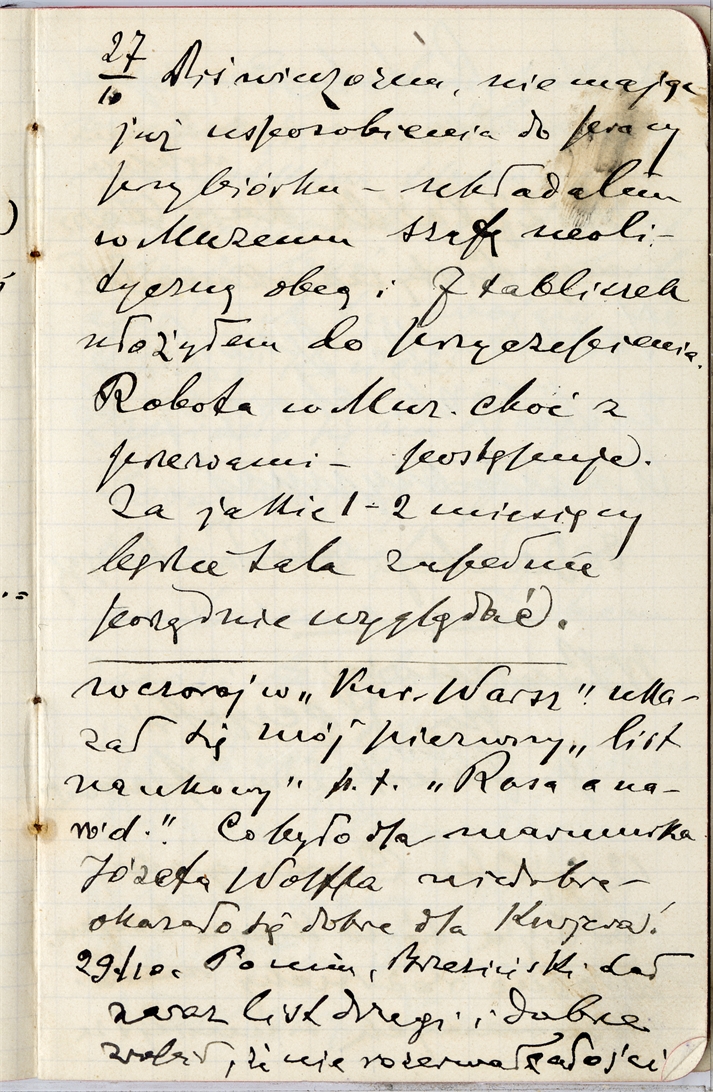 27/10 Dziś wieczorem, nie mając
już usposobienia do pracy
przy biórku – układałem
w Muzeum szafę neoli-
tyczną obcą i 7 tabliczek
włożyłem do przyczepienia.
Robota w Muz. choć z
przerwami – postępuje.
Za jakie 1–2 miesięcy
będzie sala zupełnie
porządnie wyglądać.
wczoraj w „Kur. Warsz" uka-
zał się mój pierwszy „list
naukowy" p. t. „Rasa a na-
ród." Co było dla
Józefa Wolffa niedobre –
okazało się dobre dla Kurjera!
29/10. Po nim, Brzeziński dał
zaraz list drugi i dobrze
zrobił, że nie rozerwał całości